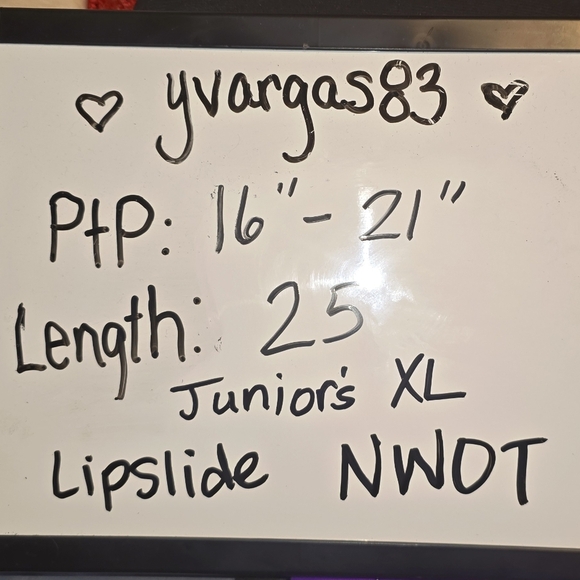 ♡ yvargas83 ♡
PtP: 16"- 21"
Length: 25
Junior's XL
Lipslide NWOT